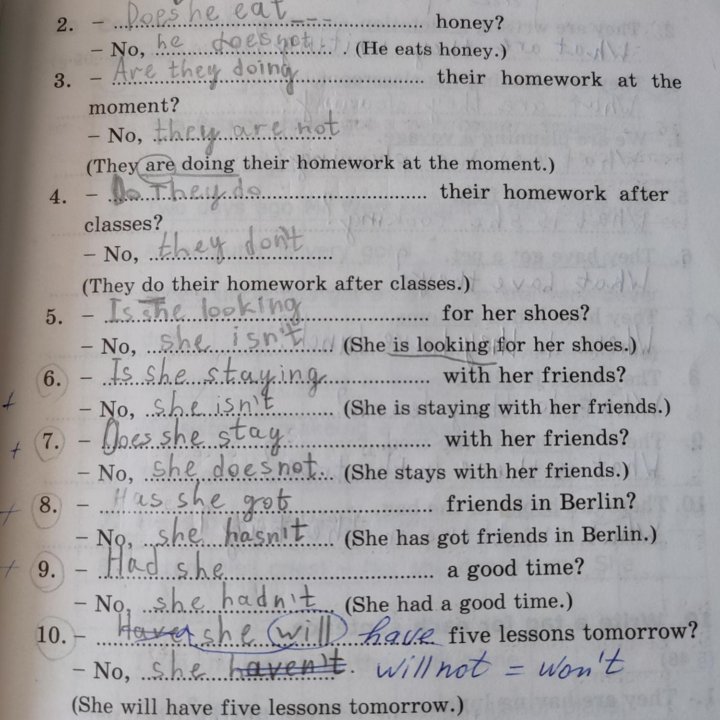 2. – Does he eat honey?
– No, he does not. (He eats honey.)
3. – Are they doing their homework at the
moment?
– No, they are not
(They are doing their homework at the moment.)
4. – Do They do their homework after
classes?
– No, they don't
(They do their homework after classes.)
5. – Is she looking for her shoes?
– No, she isn't (She is looking for her shoes.)
6. – Is she staying with her friends?
– No, she isn't (She is staying with her friends.)
7. – Does she stay with her friends?
– No, she does not. (She stays with her friends.)
8. – Has she got friends in Berlin?
– No, she hasn't (She has got friends in Berlin.)
9. – Had she a good time?
– No, she hadn't (She had a good time.)
10. – she will have five lessons tomorrow?
– No, she haven't. will not = won't
(She will have five lessons tomorrow.)